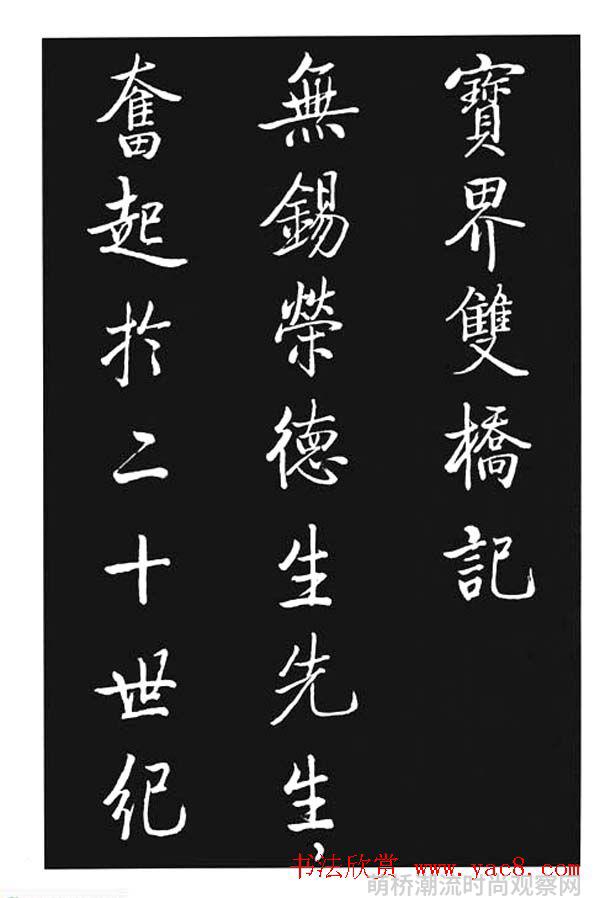 寶界雙橋記
無錫榮德生先生，
奮起於二十世紀
书法欣赏 www.yac8.com
萌桥潮流时尚观察网